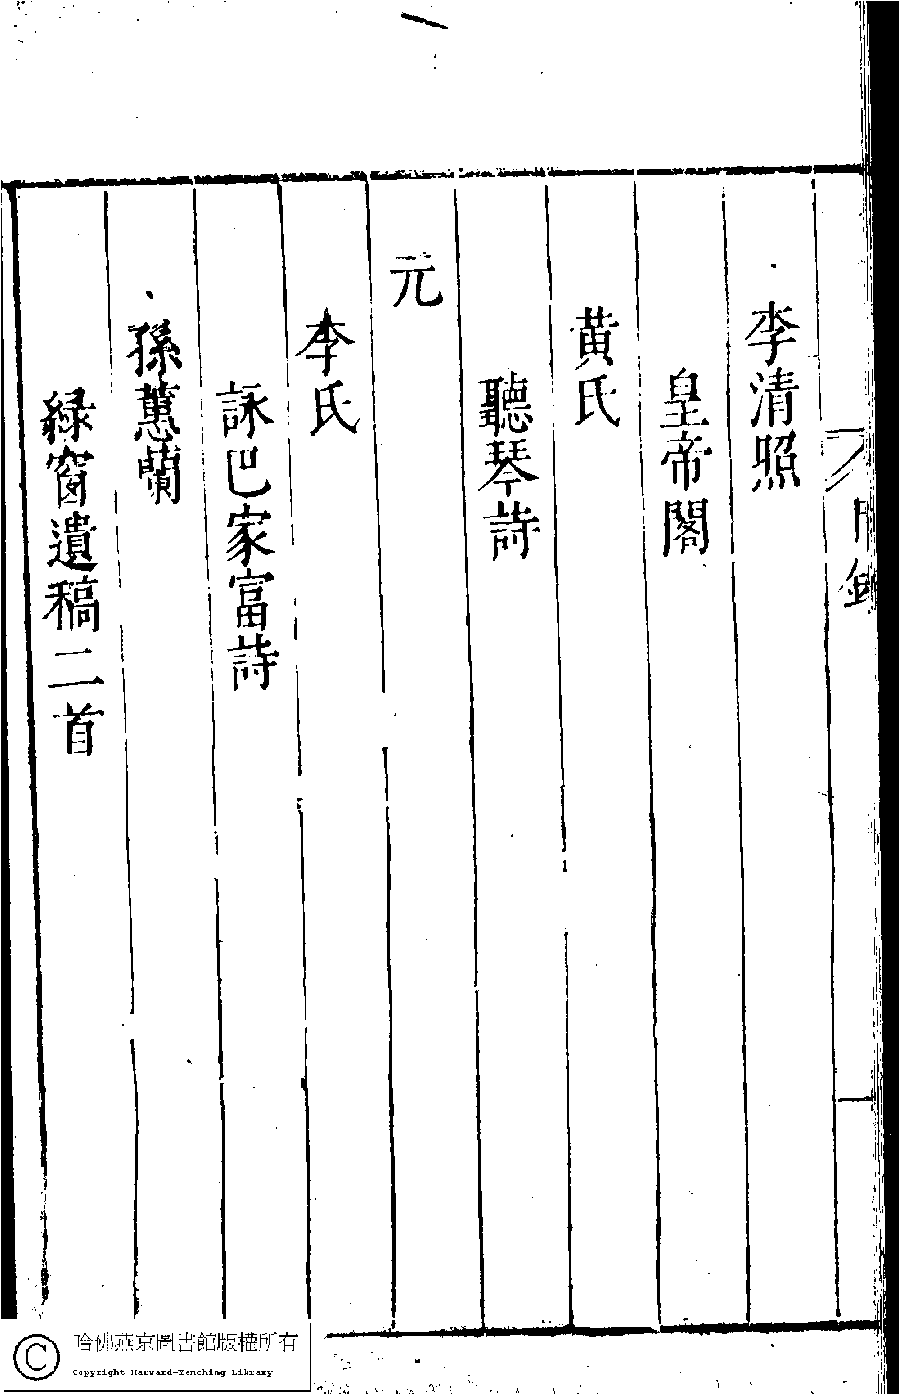 李清照
皇帝閣
黄氏
聽琴詩
元
李氏
詠巴家富詩
孫蕙蘭
緑窗遺稿二首
哈佛燕京圖書館版權所有
Copyright Harvard-Yenching Library